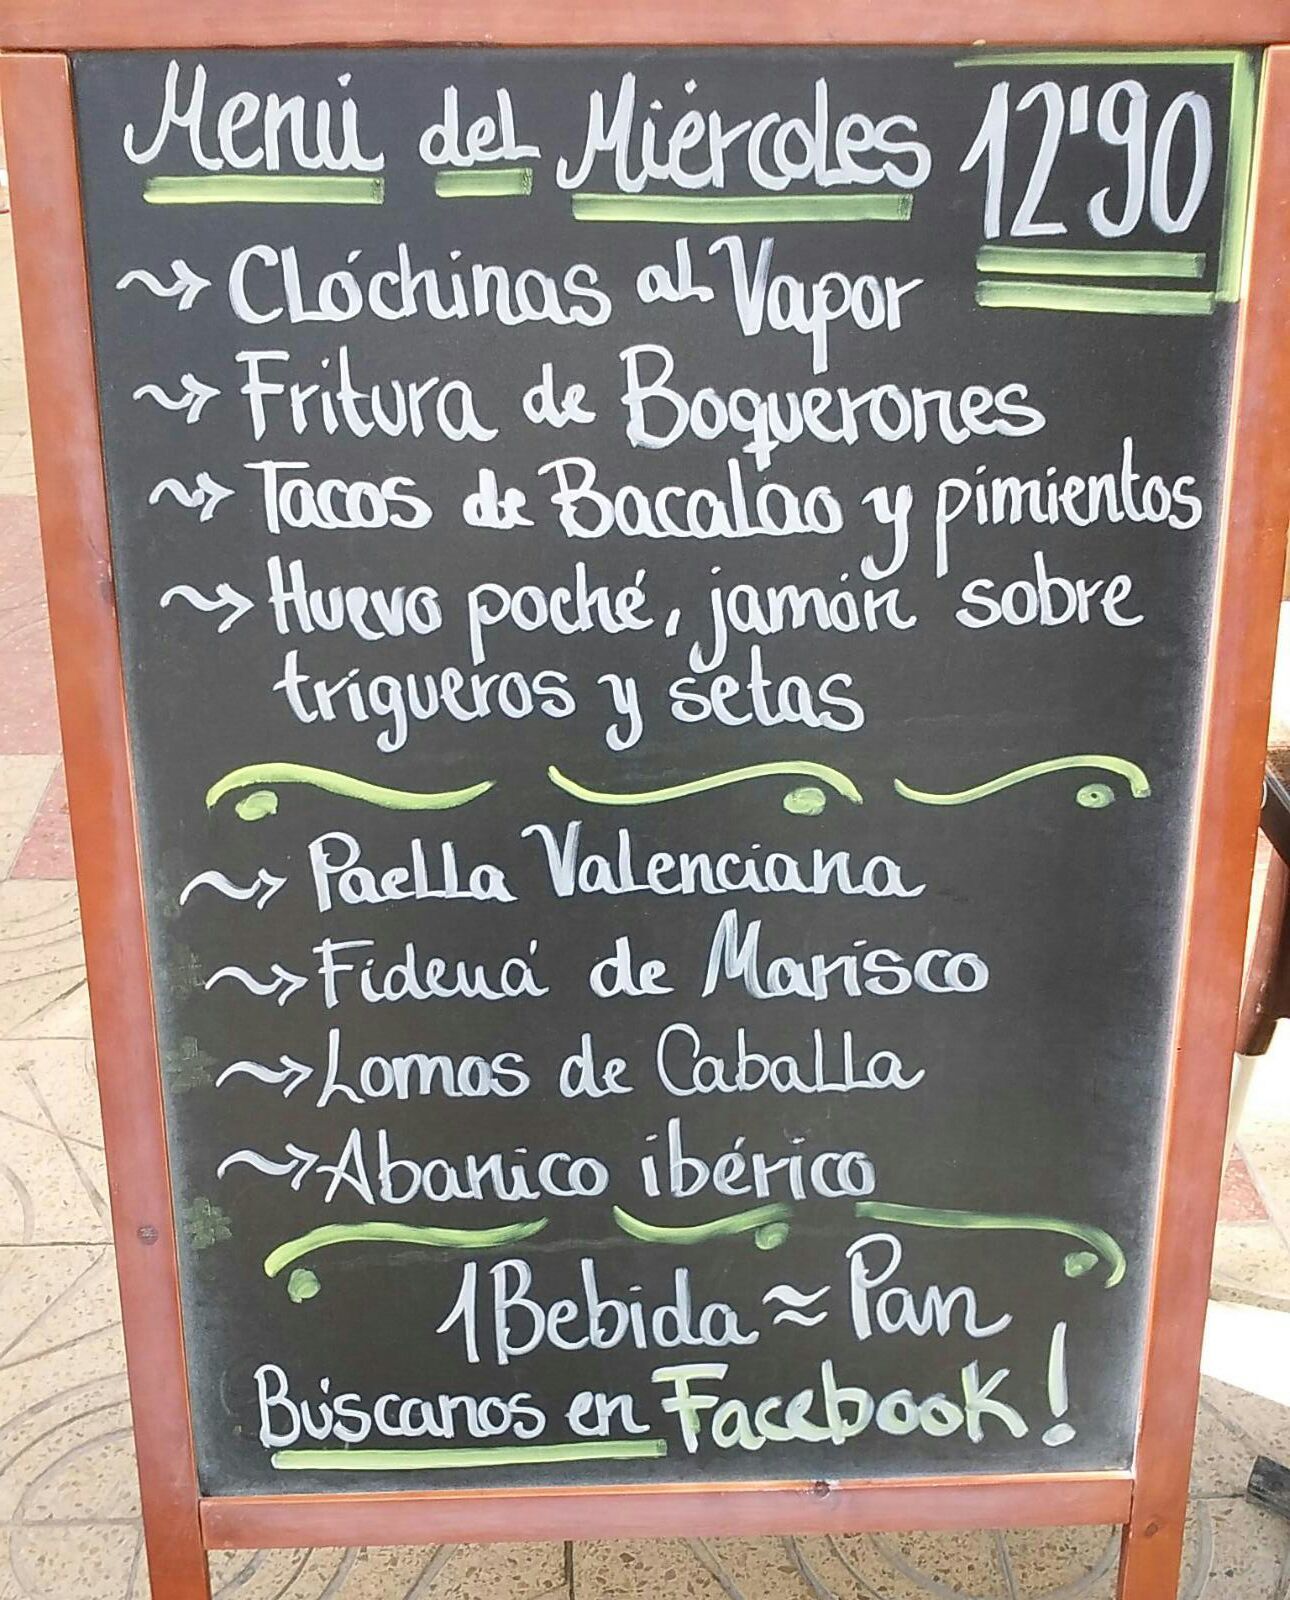 Menú del Miércoles 12'90
Clóchinas al Vapor
Fritura de Boquerones
Tacos de Bacalao y pimientos
Huevo poché, jamón sobre
trigueros y setas
Paella Valenciana
Fideuá de Marisco
Lomos de Caballa
Abanico ibérico
1 Bebida ≈ Pan
Búscanos en Facebook!